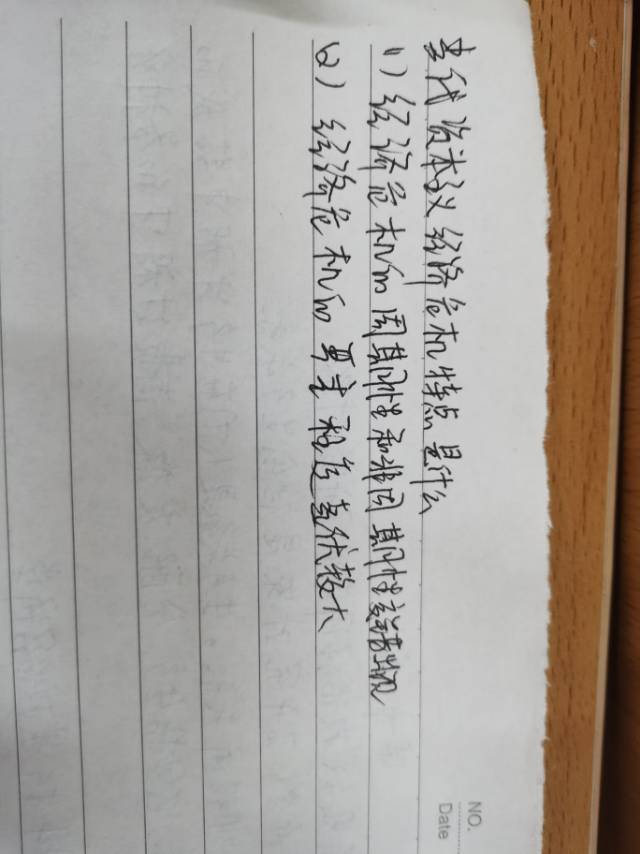 NO.
Date
当代资本主义经济危机特点是什么
(1) 经济危机的周期性和非周期性交错出现
(2) 经济危机的要求和
较大